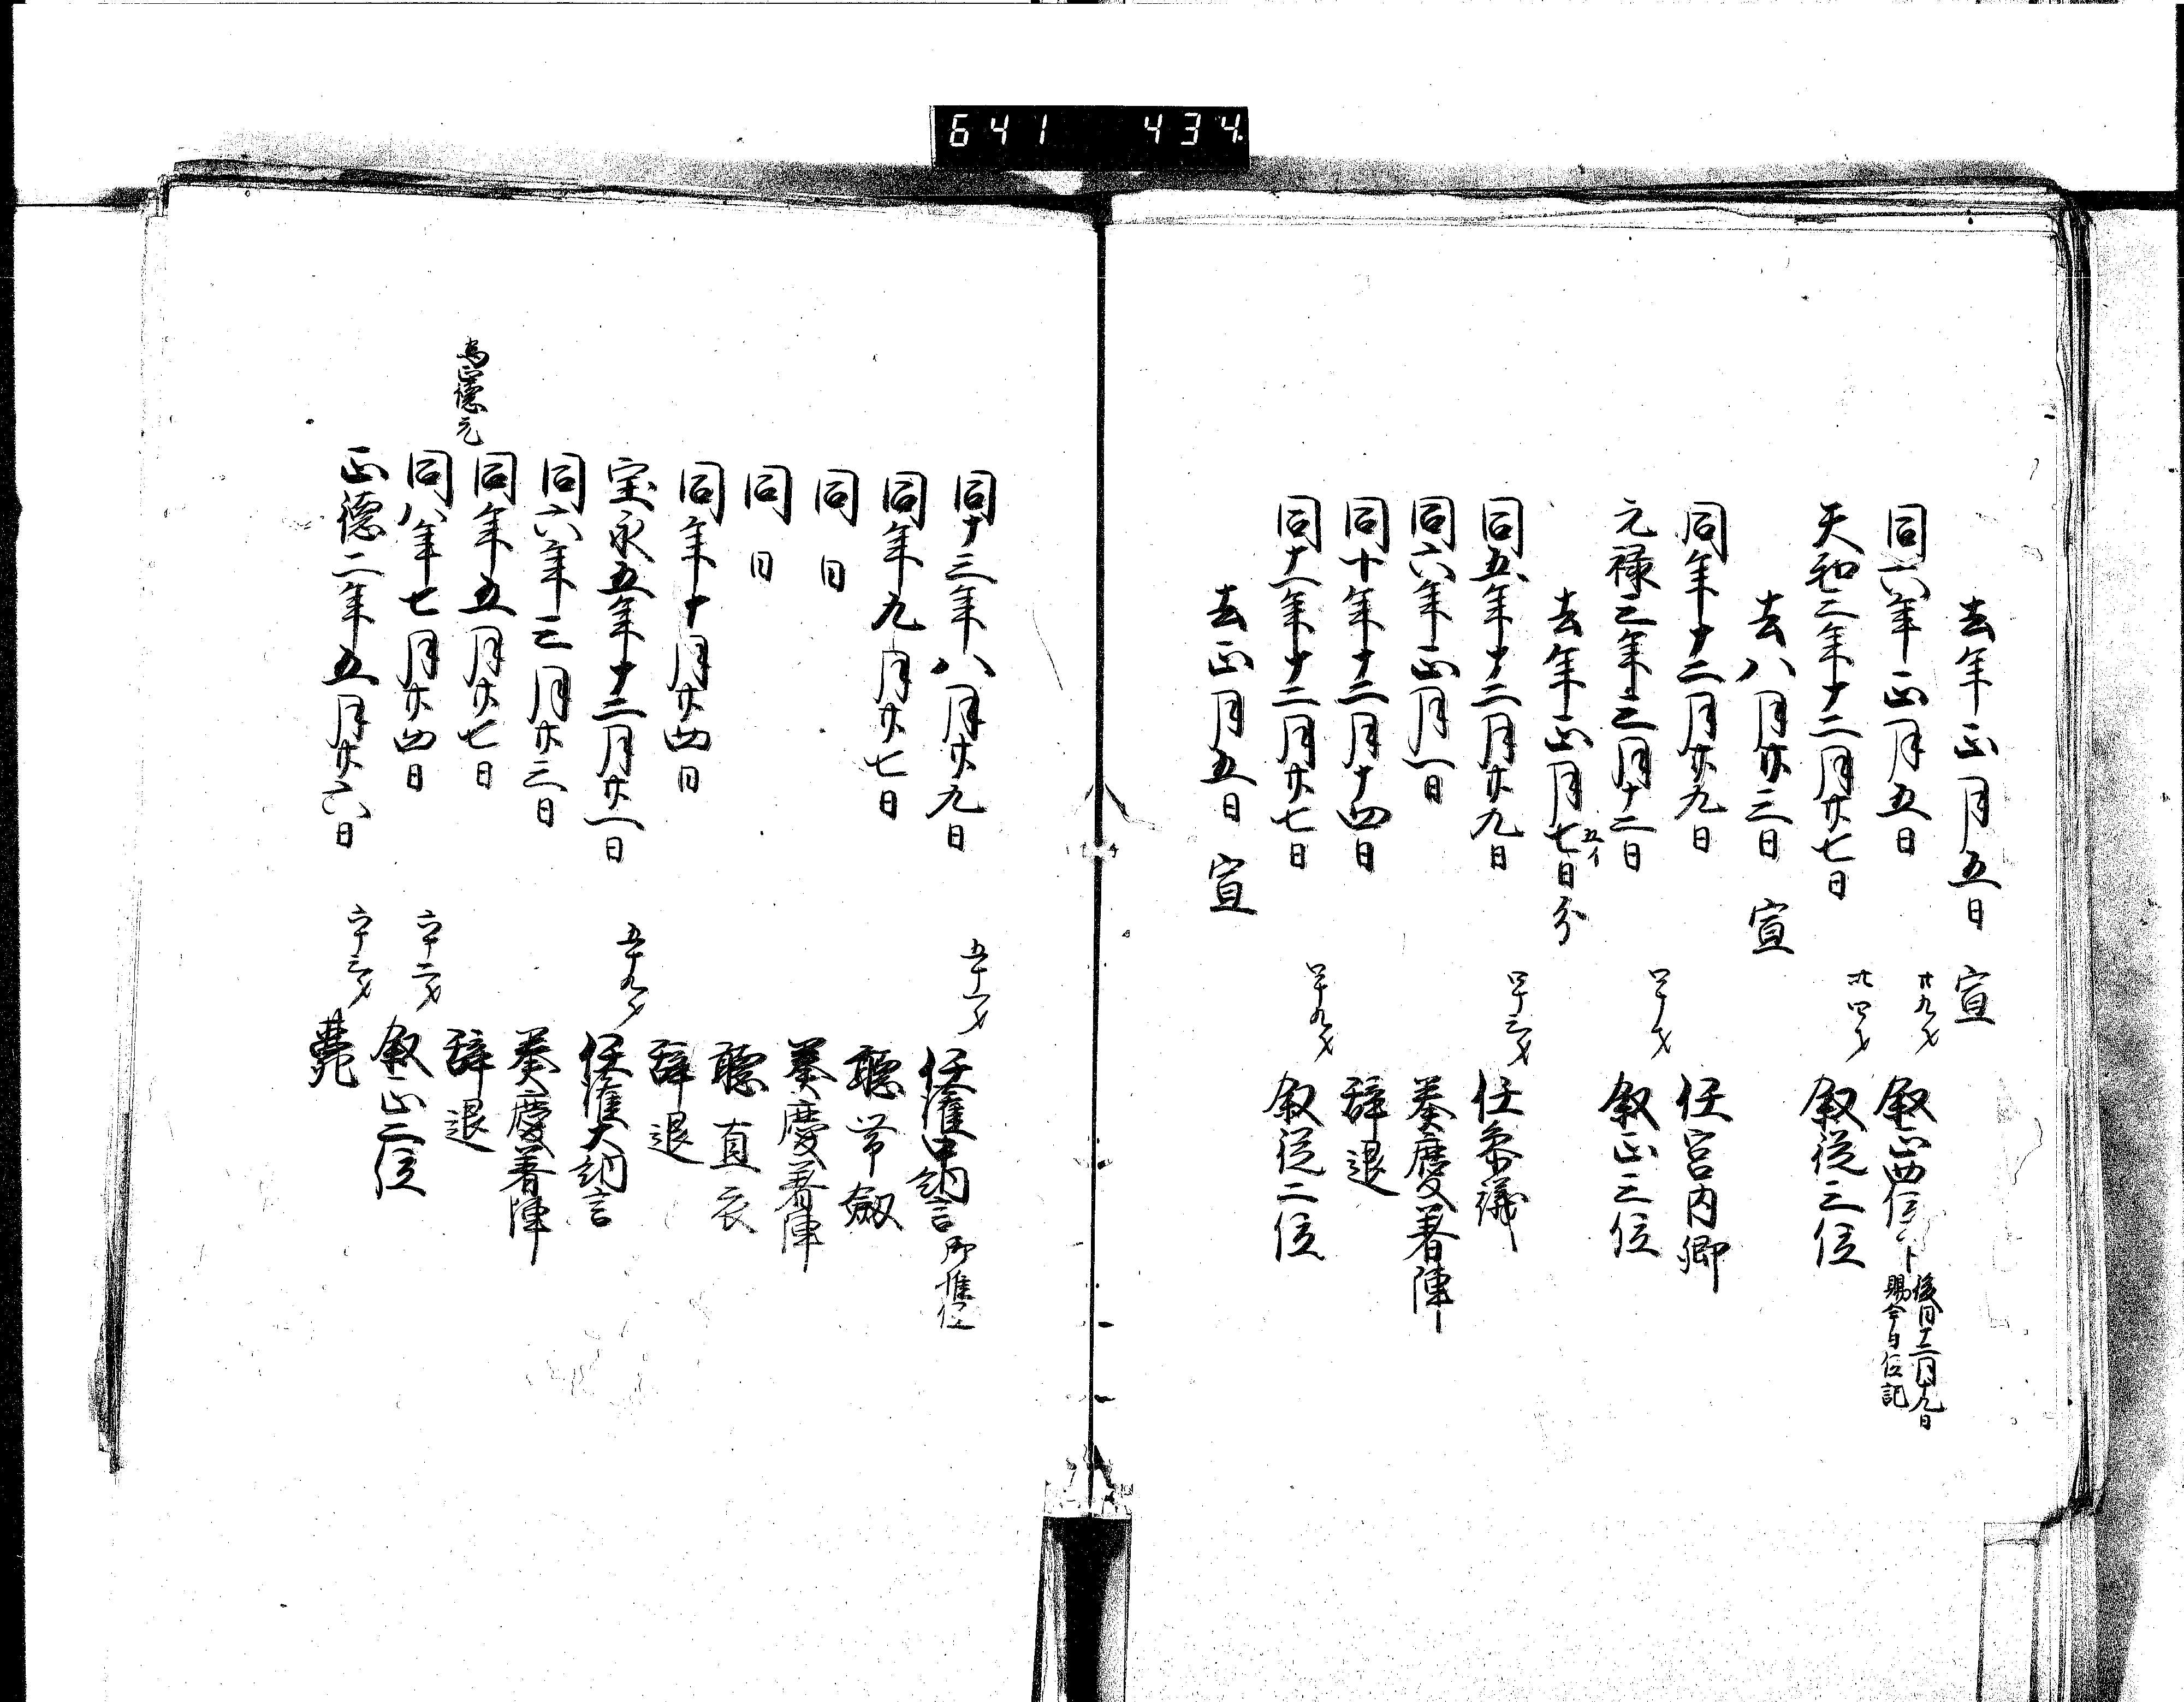 641 434
去年正月五日 宣
同六年正月五日 廿九才 叙正四位下 後同十二月十九日
賜今日位記
天和二年十二月廿七日 卅四才 叙従三位
去八月廿三日 宣
同年十二月廿九日 任宮内卿
元禄三年三月十二日 四十才 叙正三位
去年正月七日分 五イ
同五年十二月廿九日 四十三才 任参議
同六年正月一日 奏慶着陣
同十年十二月十四日 辞退
同十一年十二月廿七日 四十九才 叙従二位
去正月五日 宣
同十三年八月廿九日 五十一才 任権中納言
同年九月廿七日 聴帯剱
同日 奏慶着陣
同日 聴直衣
同年十月廿四日 辞退
宝永五年十二月廿一日 五十九才 任権大納言
同六年三月廿三日 奏慶着陣
同年五月廿七日 辞退
為正徳元
同八年七月廿四日 六十二才 叙正二位
正徳二年五月廿六日 六十三才 薨